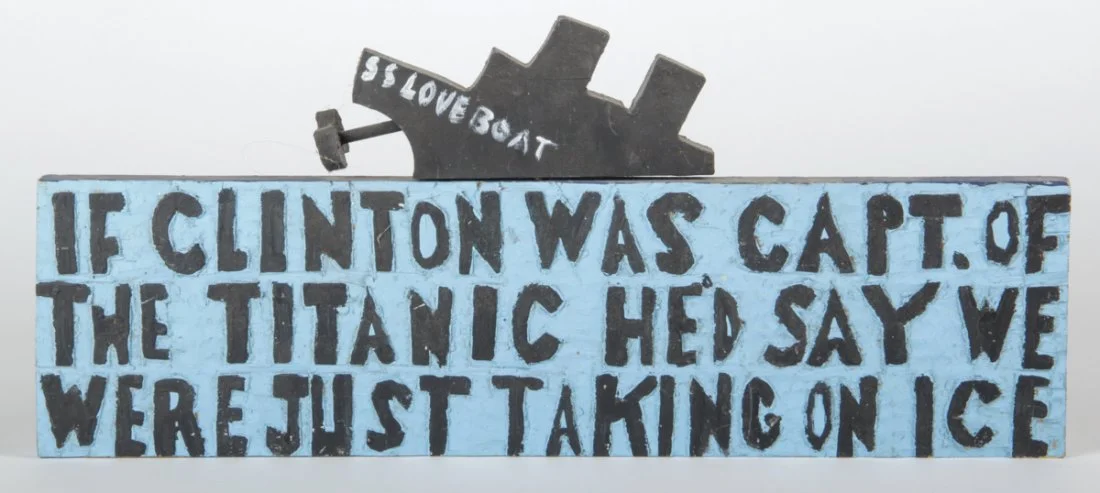 SS LOVE BOAT
IF CLINTON WAS CAPT. OF
THE TITANIC HE'D SAY WE
WERE JUST TAKING ON ICE